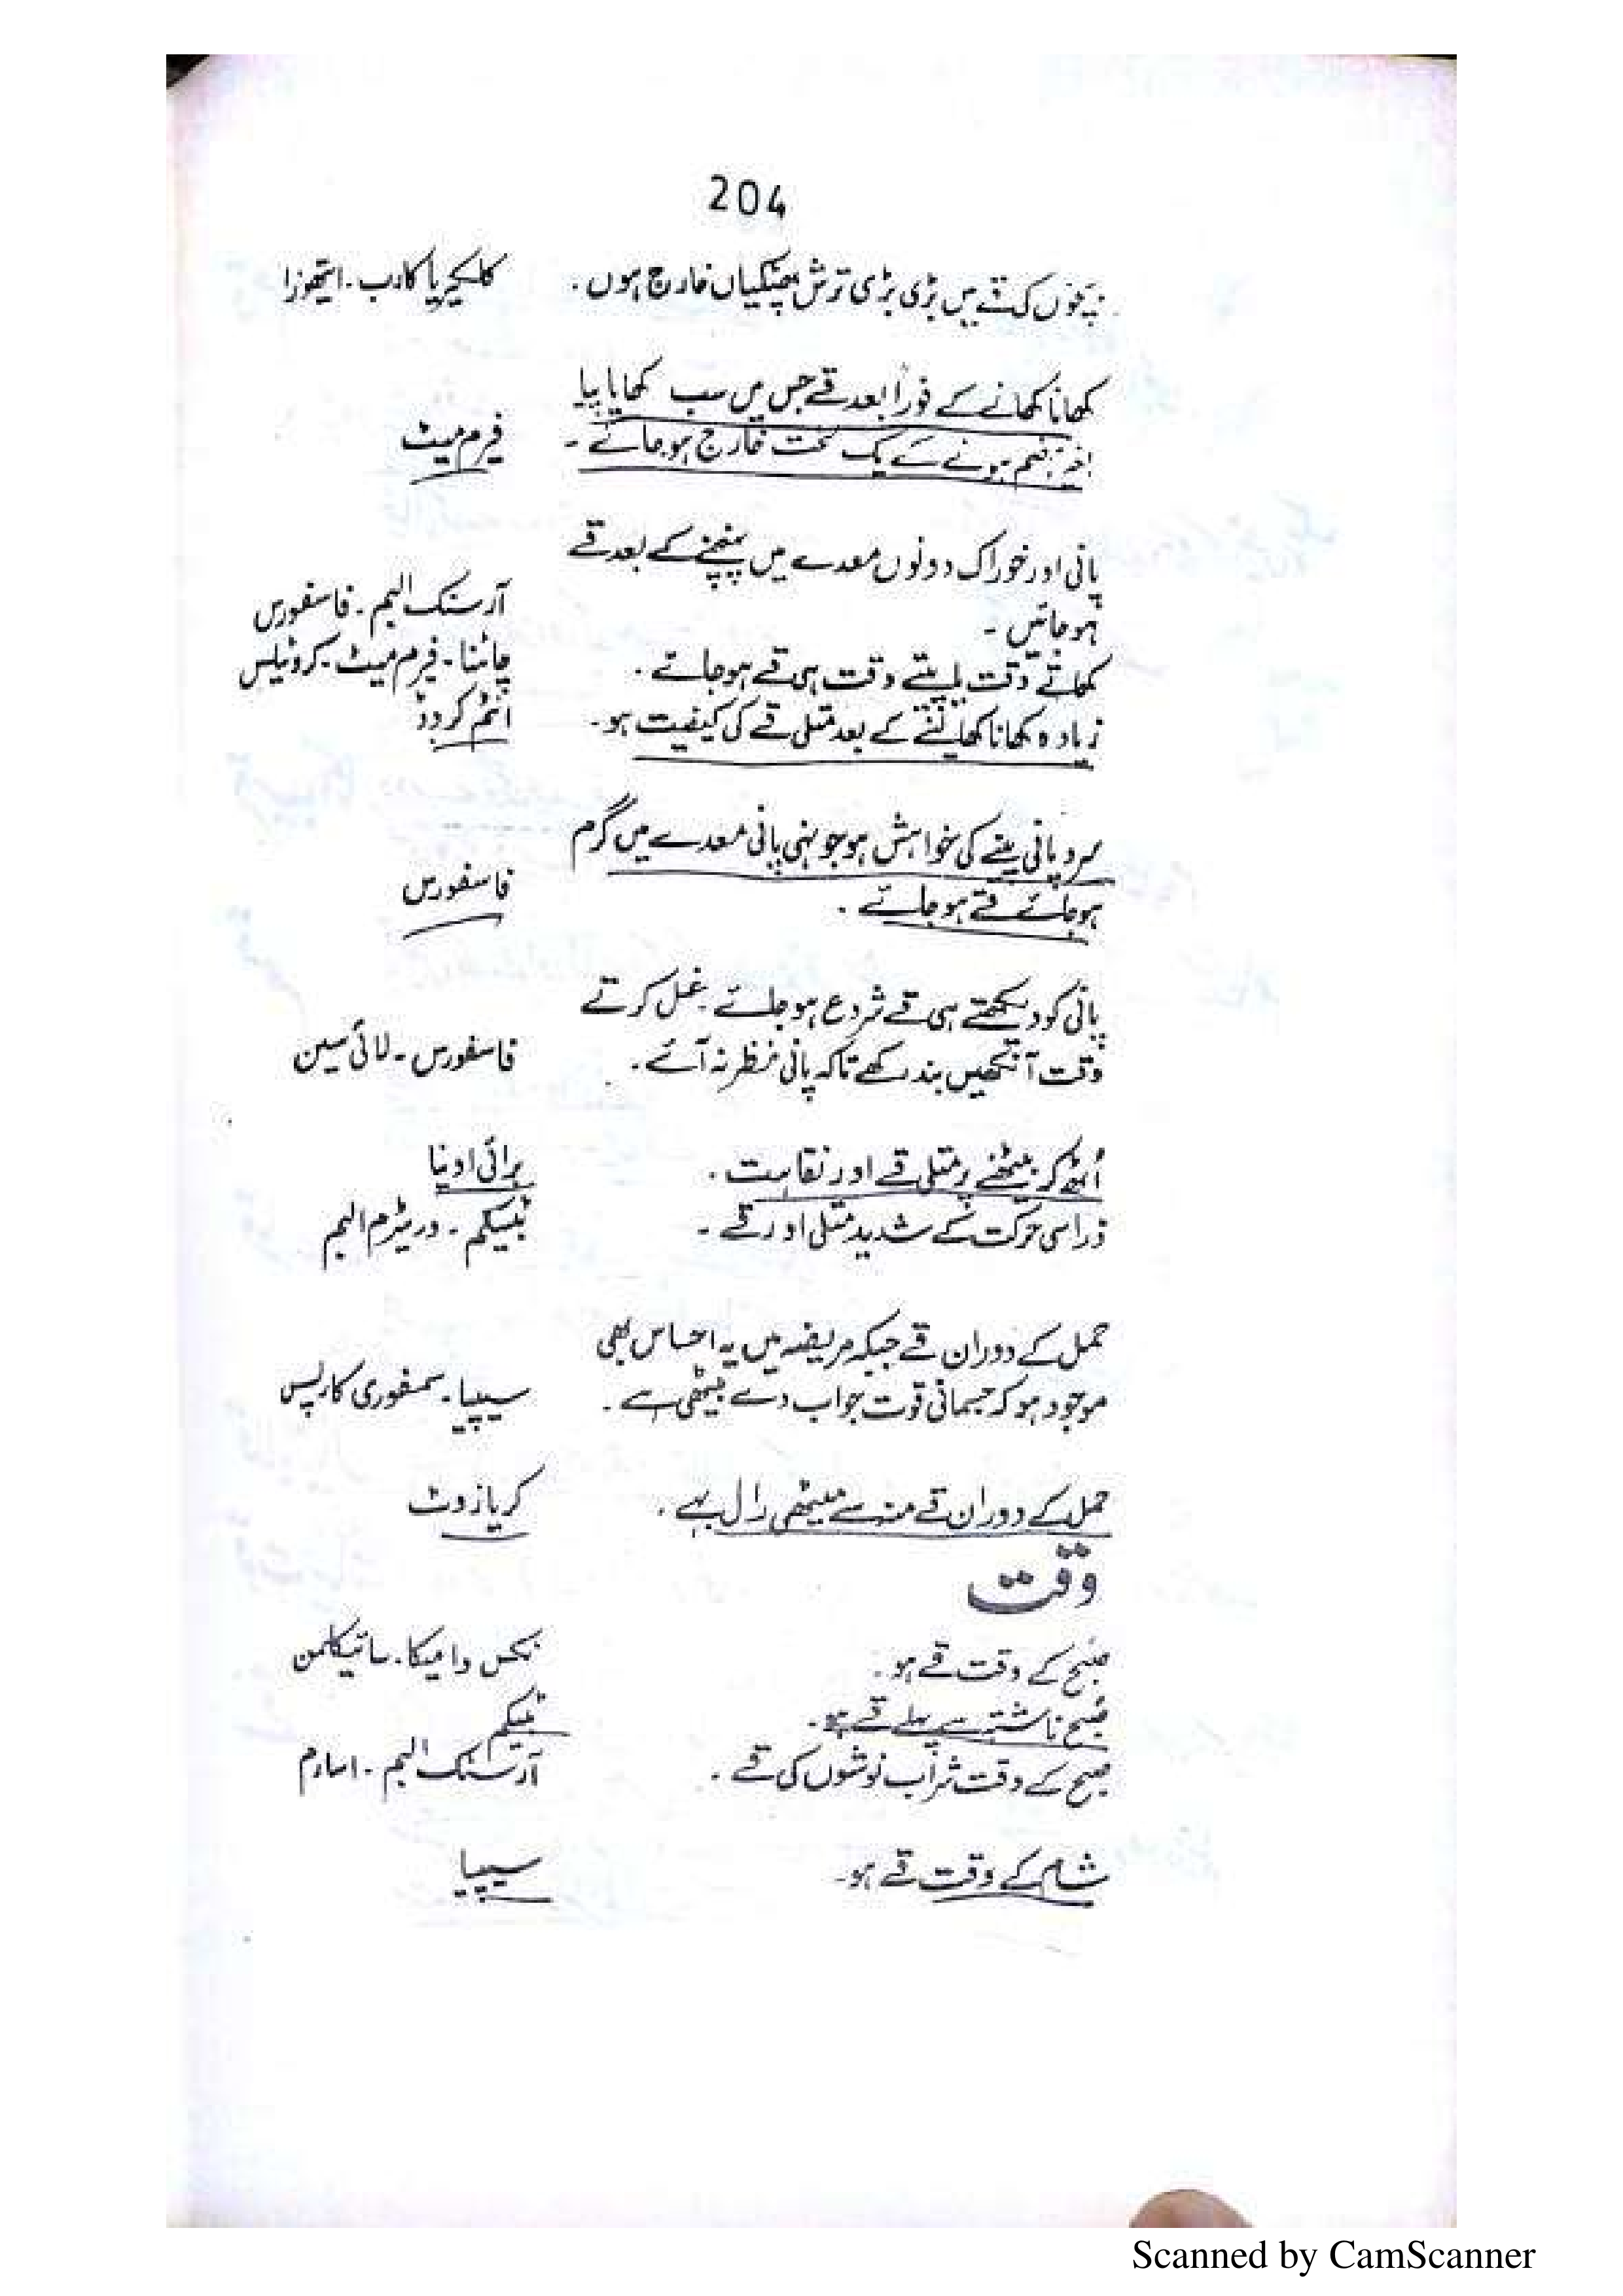 204
بچوں کی قے میں بڑی بڑی ترش پھٹکیاں خارج ہوں۔ کلکیریا کارب۔ ایتھوزا
کھانا کھانے کے فوراً بعد قے جس میں سب کھایا پیا
بغیر ہضم ہونے کے یک لخت خارج ہو جائے۔ فیرم میٹ
پانی اور خوراک دونوں معدے میں پہنچنے کے بعد قے
ہو جائیں۔ آرسنک البم۔ فاسفورس
کھاتے وقت یا پیتے وقت ہی قے ہو جائے۔ چائنا۔ فیرم میٹ۔ کروٹیلس
زیادہ کھانا کھا لینے کے بعد متلی قے کی کیفیت ہو۔ انٹم کروڈ
سرد پانی پینے کی خواہش ہو جونہی پانی معدے میں گرم
ہو جائے قے ہو جائے۔ فاسفورس
پانی کو دیکھتے ہی قے شروع ہو جائے۔ غسل کرتے
وقت آنکھیں بند رکھے تاکہ پانی نظر نہ آئے۔ فاسفورس۔ لائی سین
اُٹھ کر بیٹھنے پر متلی قے اور نقاہت۔ برائی اونیا
ذرا سی حرکت سے شدید متلی اور قے۔ ٹبیکم۔ وریٹرم البم
حمل کے دوران قے جبکہ مریضہ میں یہ احساس بھی
موجود ہو کہ جسمانی قوت جواب دے بیٹھی ہے۔ سیپیا۔ سمفوری کارپس
حمل کے دوران قے منہ سے میٹھی رال بہے۔ کریازوٹ
وقت
صبح کے وقت قے ہو۔ نکس وامیکا۔ سائیکلمن
صبح ناشتہ سے پہلے قے ہو۔ ٹبیکم
صبح کے وقت شراب نوشوں کی قے۔ آرسنک البم۔ اسارم
شام کے وقت قے ہو۔ سیپیا
Scanned by CamScanner